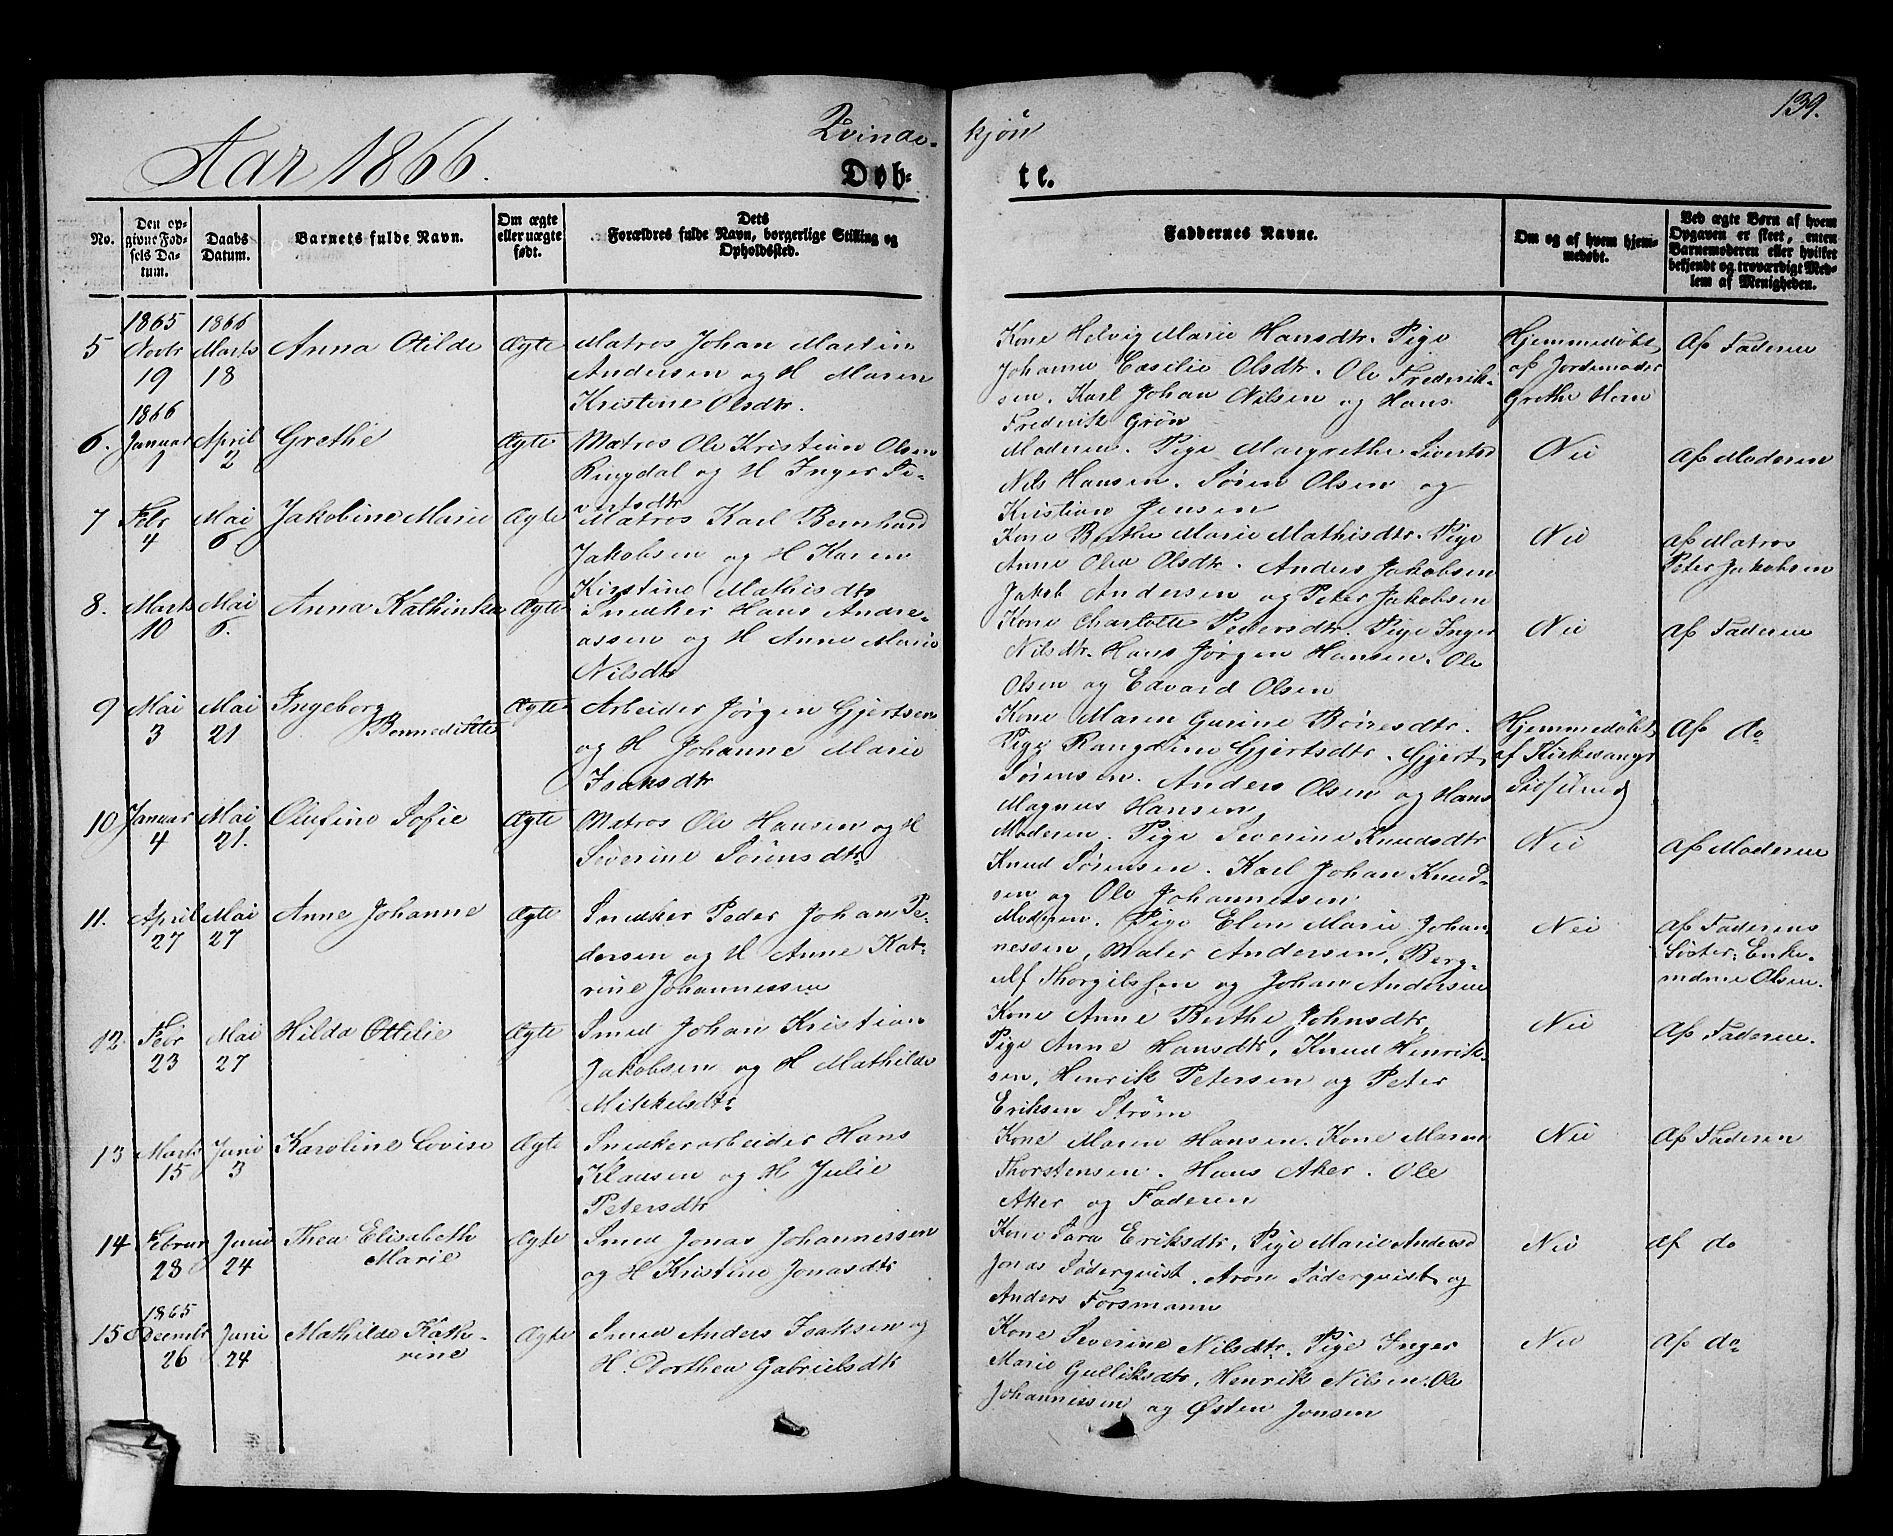 139.
Aar 1866.
Qvinde-
kjøn
Døb-
te.
No.
Den op-
givne Fød-
sels Da-
tum.
Daabs
Datum.
Barnets fulde Navn.
Om ægte
eller uægte
født.
Dets
Forældres fulde Navn, borgerlige Stilling og
Opholdssted.
Faddernes Navne.
Om og af hvem hjem-
medøbt.
Ved ægte Børn af hvem
Opgaven er skeet, enten
Barnemoderen eller hvilket
bekjendt og troværdigt Med-
lem af Menigheden.
5
1865
Novbr
19
1866
Marts
18
Anna Otilde
Ægte
Matros Johan Martin
Andersen og H Maren
Kristine Olsdtr.
Kone Helvig Marie Hansdtr. Pige
Johanne Cæsilie Olsdtr. Ole Frederik-
sen. Karl Johan Nilsen og Hans
Frederik Grøn
Hjemmedøbt
af Jordemoder
Grethe Horn
Af Faderen
6.
1866
Januar
1
April
2
Grethe
Ægte
Matros Ole Kristian Olsen
Ringdal og H Inger Si-
vertsdtr
Moderen. Pige Margrethe Sivertsd
Nils Hansen. Søren Olsen og
Kristian Jensen
Nei
Af Moderen
7
Febr
4
Mai
6
Jakobine Marie
Ægte
Matros Karl Bernhard
Jakobsen og H Karen
Kirstine Mathisdtr
Kone Berthe Marie Mathisdtr. Pige
Anne Olea Olsdtr. Anders Jakobsen
Jakob Andersen og Peter Jakobsen
Nei
af Matros
Peter Jakobsen
8.
Marts
10
Mai
6.
Anna Kathinka
Ægte
Snedker Hans Andre-
assen og H Anne Marie
Nilsdtr
Kone Charlotte Pedersdtr. Pige Inger
Nilsdtr. Hans Jørgen Hansen. Ole
Olsen og Edvard Olsen
Nei
Af Faderen
9
Mai
3
Mai
21
Ingeborg
Bennedikte
Ægte
Arbeider Jørgen Gjertsen
og H Johanne Marie
Isaksdtr
Kone Maren Gurine Boiresdtr.
Pige Rangdine Gjertsdtr. Gjert
Sørensen. Anders Olsen og Hans
Magnus Hansen
Hjemmedøbt
af Kirkesangr
Af do
10
Januar
4
Mai
21.
Olufine Sofie
Ægte
Matros Ole Hansen og H
Severine Sørensdtr
Moderen. Pige Severine Knudsdtr
Knud Sørensen. Karl Johan Knud-
sen og Ole Johannessen
Nei
Af Moderen
11.
April
27
Mai
27
Anne Johanne
Ægte
Snedker Peder Johan Pe-
dersen og H Anne Kat-
rine Johannessen
Moderen. Pige Elen Marie Johan-
nessen, Maler Andersen, Berg-
ulf Thorgilssen og Johan Andersen
Nei
af Faderens
Søster, Enke-
madme Olsen.
12
Febr
23
Mai
27
Hilda Ottilie
Ægte
Smed Johan Kristian
Jakobsen og H Mathilde
Mikkelsdtr
Kone Anne Berthe Johnsdtr,
Pige Anne Hansdtr, Knud Henrik-
sen, Henrik Petersen og Peter
Eriksen Strøm
Nei
Af Faderen.
13
Marts
15
Juni
3
Karoline Lovise
Ægte
Snedkerarbeider Hans
Klausen og H Julie
Petersdtr
Kone Maren Hansen. Kone Maren
Thorstensen. Hans Aker. Ole
Aker og Faderen
Nei
Af Faderen
14
Februr
28
Juni
24
Thea Elisabeth
Marie
Ægte
Smed Jonas Johannessen
og H Kristine Jonasdtr
Kone Sara Eriksdtr, Pige Marie Andersd
Jonas Söderquist. Aron Söderquist og
Anders Forsmann
Nei
Af do
15
1865
Decembr
26
Juni
24
Mathilde Kath-
rine
Ægte
Smed Anders Isaksen og
H. Dorthea Gabrielsdtr
Kone Severine Nilsdtr. Pige Inger
Marie Gulliksdtr, Henrik Nilsen. Ole
Johannessen og Østen Jonsen
Nei
Af do